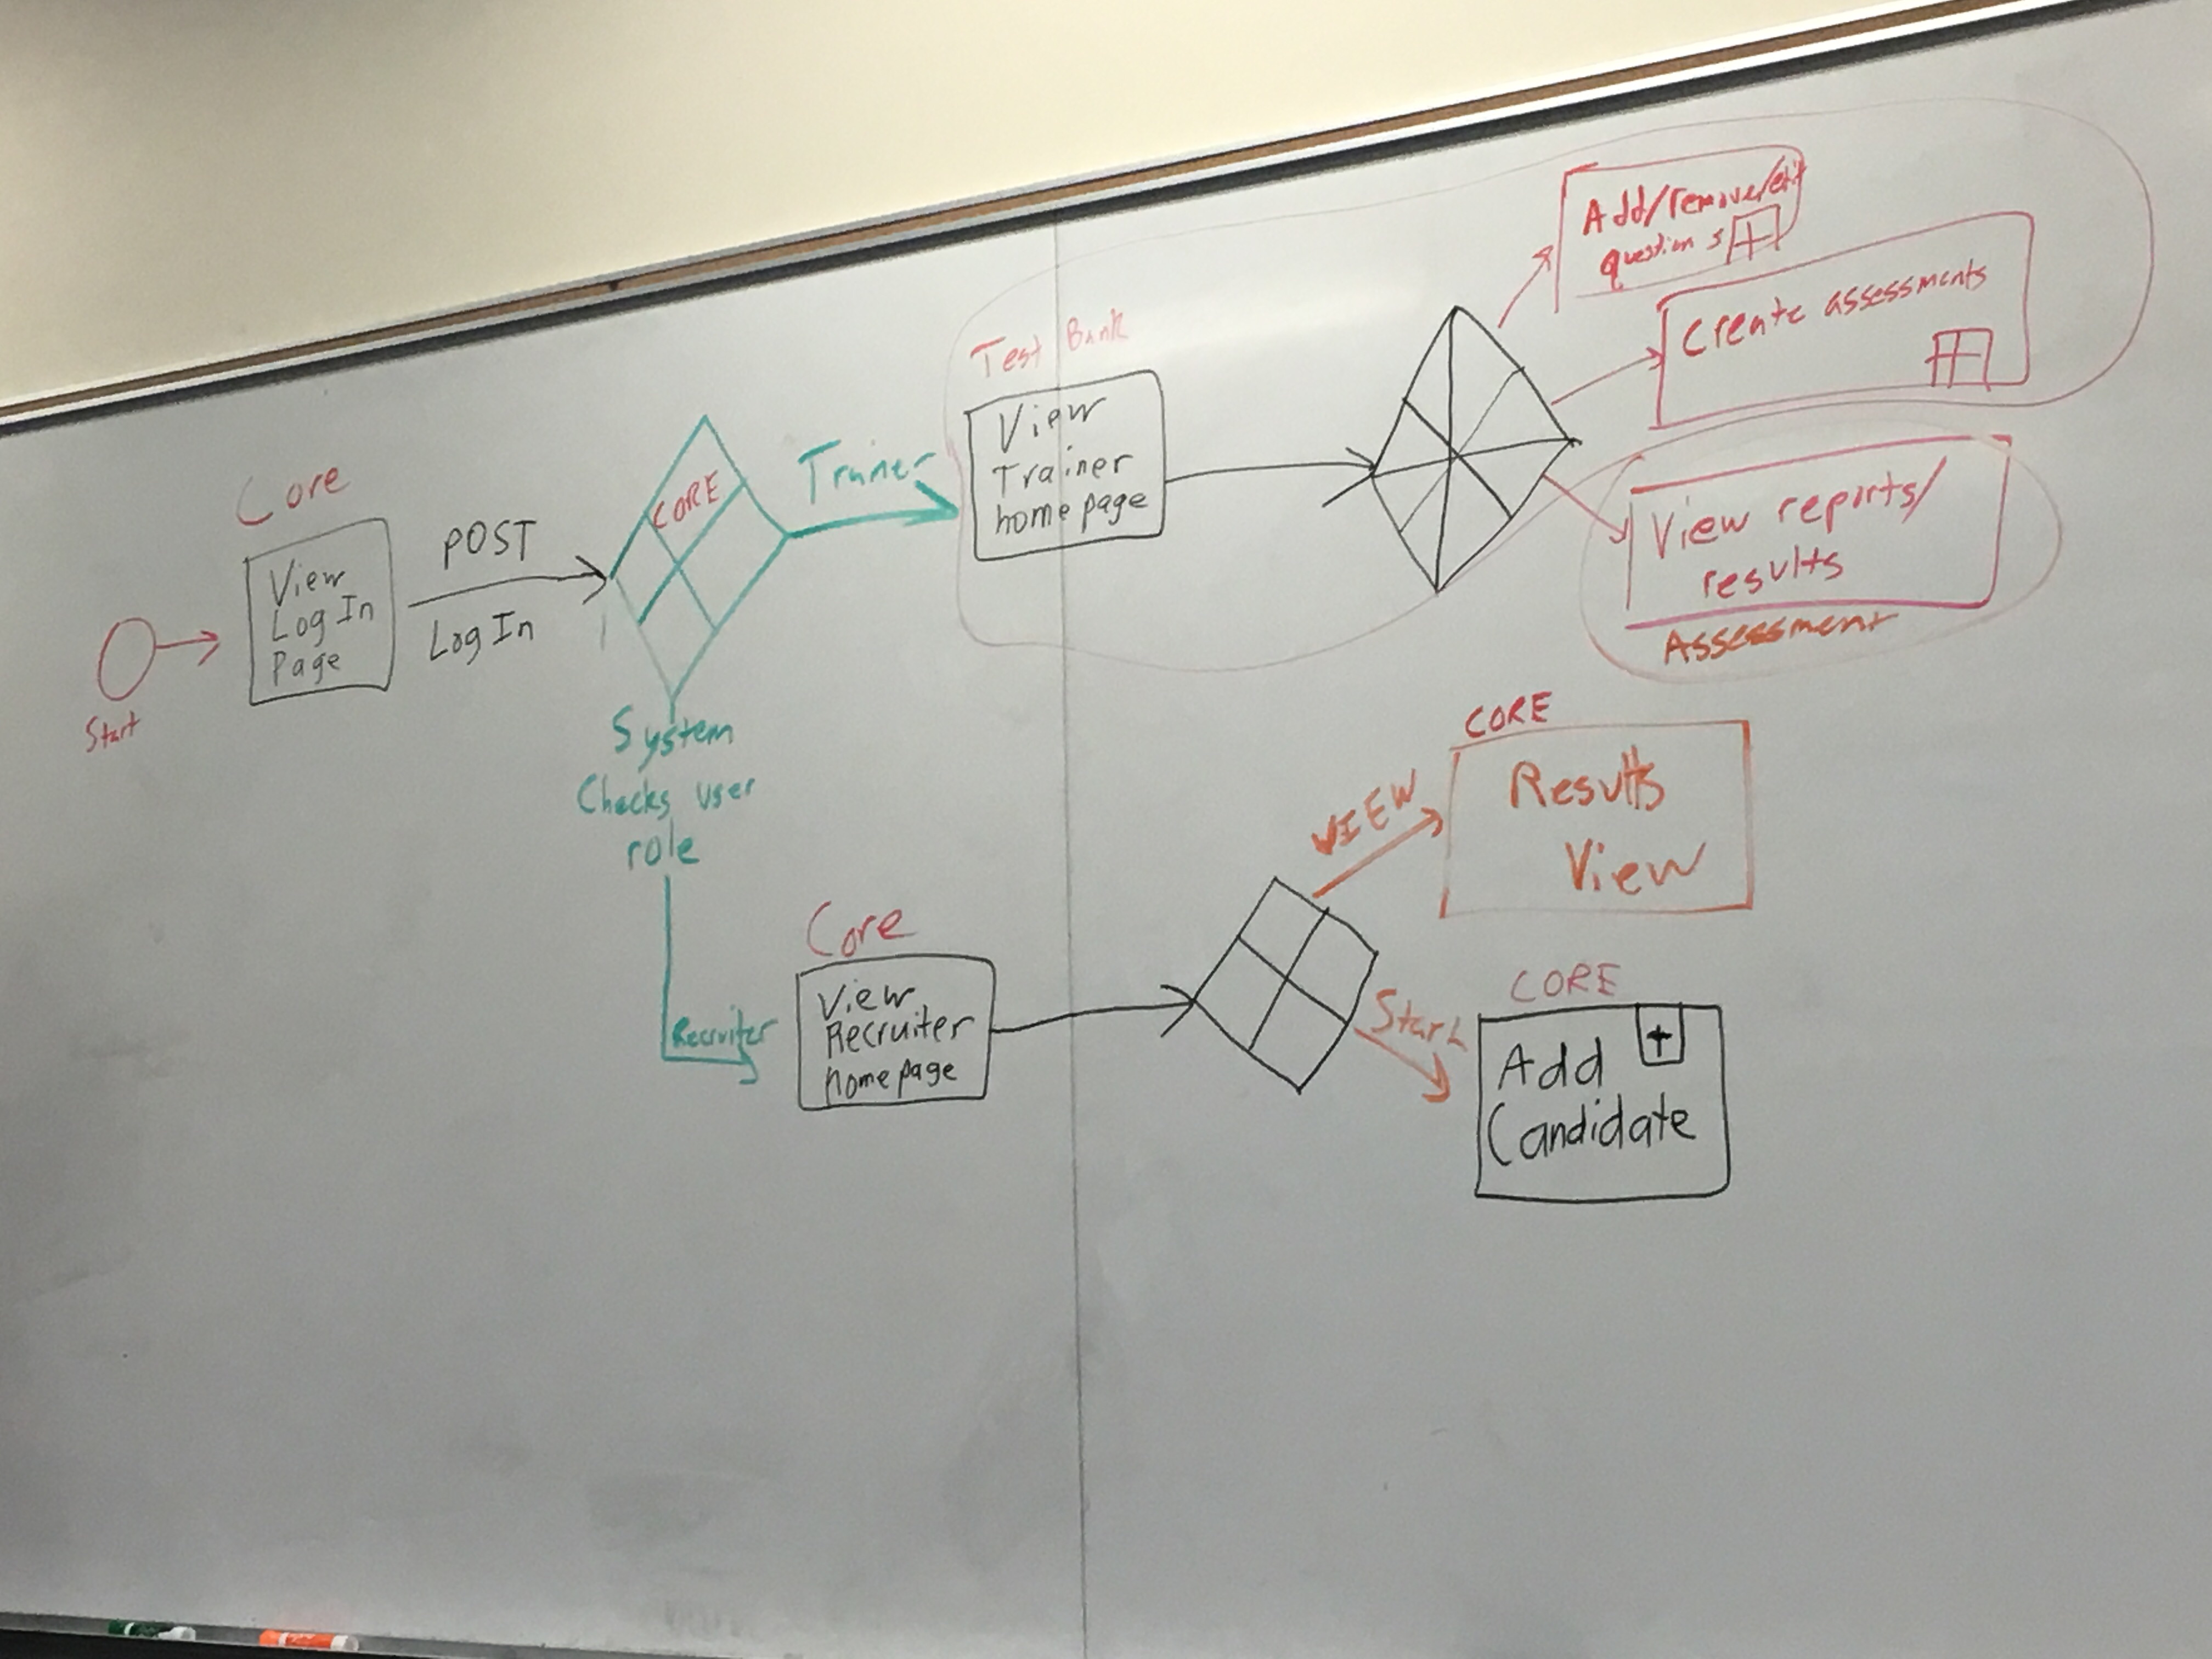 Start
Core
View
Log In
Page
POST
Log In
CORE
System
Checks user
role
Trainer
Test Bank
View
Trainer
home page
Add/remove/edit
questions +
Create assessments
+
View reports/
results
Assessment
Recruiter
Core
View
Recruiter
homepage
VIEW
CORE
Results
View
Start
CORE
Add +
Candidate